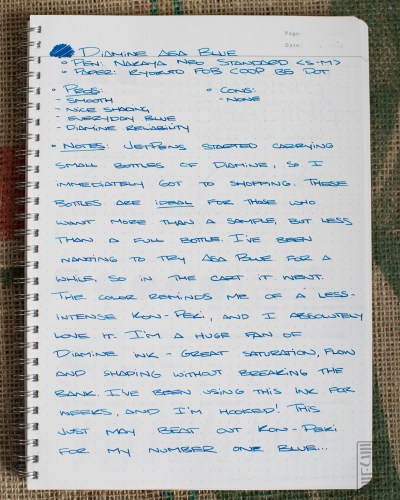 Page:
Date:
Diamine Asa Blue
Pen: Nakaya Neo Standard <S-M>
Paper: Kyokuto FOB COOP B5 Dot
Pros:
- Smooth
- Nice Shading
- Everyday Blue
- Diamine Reliability
Cons:
- None
Notes: JetPens started carrying
small bottles of Diamine, so I
immediately got to shopping. These
bottles are ideal for those who
want more than a sample, but less
than a full bottle. I've been
wanting to try Asa Blue for a
while, so in the cart it went.
The color reminds me of a less-
intense Kon-Peki, and I absolutely
love it. I'm a huge fan of
Diamine ink - great saturation, flow
and shading without breaking the
bank. I've been using this ink for
weeks, and I'm hooked! This
just may beat out Kon-Peki
for my number one blue...